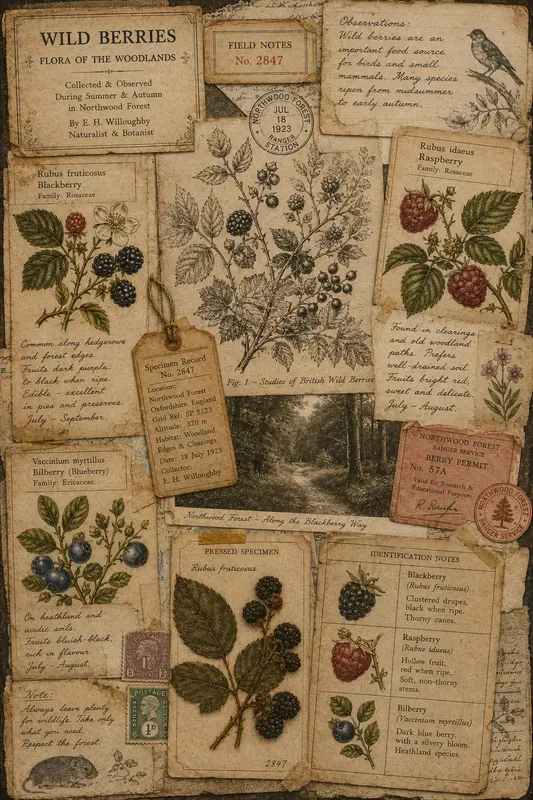 WILD BERRIES
FLORA OF THE WOODLANDS
Collected & Observed
During Summer & Autumn
in Northwood Forest
By E. H. Willoughby
Naturalist & Botanist
FIELD NOTES
No. 2847
NORTHWOOD FOREST
JUL
18
1923
RANGER
STATION
Observations:
Wild berries are an
important food source
for birds and small
mammals. Many species
ripen from midsummer
to early autumn.
Rubus fruticosus
Blackberry
Family: Rosaceae
Common along hedgerows
and forest edges.
Fruits dark purple
to black when ripe.
Edible – excellent
in pies and preserves.
July – September.
Fig. 1 – Studies of British Wild Berries
Rubus idaeus
Raspberry
Family: Rosaceae
Found in clearings
and old woodland
paths. Prefers
well-drained soil.
Fruits bright red,
sweet and delicate.
July – August.
Specimen Record
No. 2847
Location:
Northwood Forest
Oxfordshire, England
Grid Ref. SP 5123
Altitude: 320 m
Habitat: Woodland
Edges & Clearings
Date: 18 July 1923
Collector:
E. H. Willoughby
Northwood Forest – Along the Blackberry Way
NORTHWOOD FOREST
RANGER SERVICE
BERRY PERMIT
No. 57A
Valid for Research &
Educational Purposes
NORTHWOOD FOREST
RANGER SERVICE
Vaccinium myrtillus
Bilberry (Blueberry)
Family: Ericaceae
On heathland and
acidic soils.
Fruits bluish-black,
rich in flavour.
July – August.
POSTAGE
Note:
Always leave plenty
for wildlife. Take only
what you need.
Respect the forest.
PRESSED SPECIMEN
Rubus fruticosus
2847
IDENTIFICATION NOTES
Blackberry
(Rubus fruticosus)
Clustered drupes,
black when ripe.
Thorny canes.
Raspberry
(Rubus idaeus)
Hollow fruit,
red when ripe.
Soft, non-thorny
stems.
Bilberry
(Vaccinium myrtillus)
Dark blue berry,
with a silvery bloom
Heathland species.